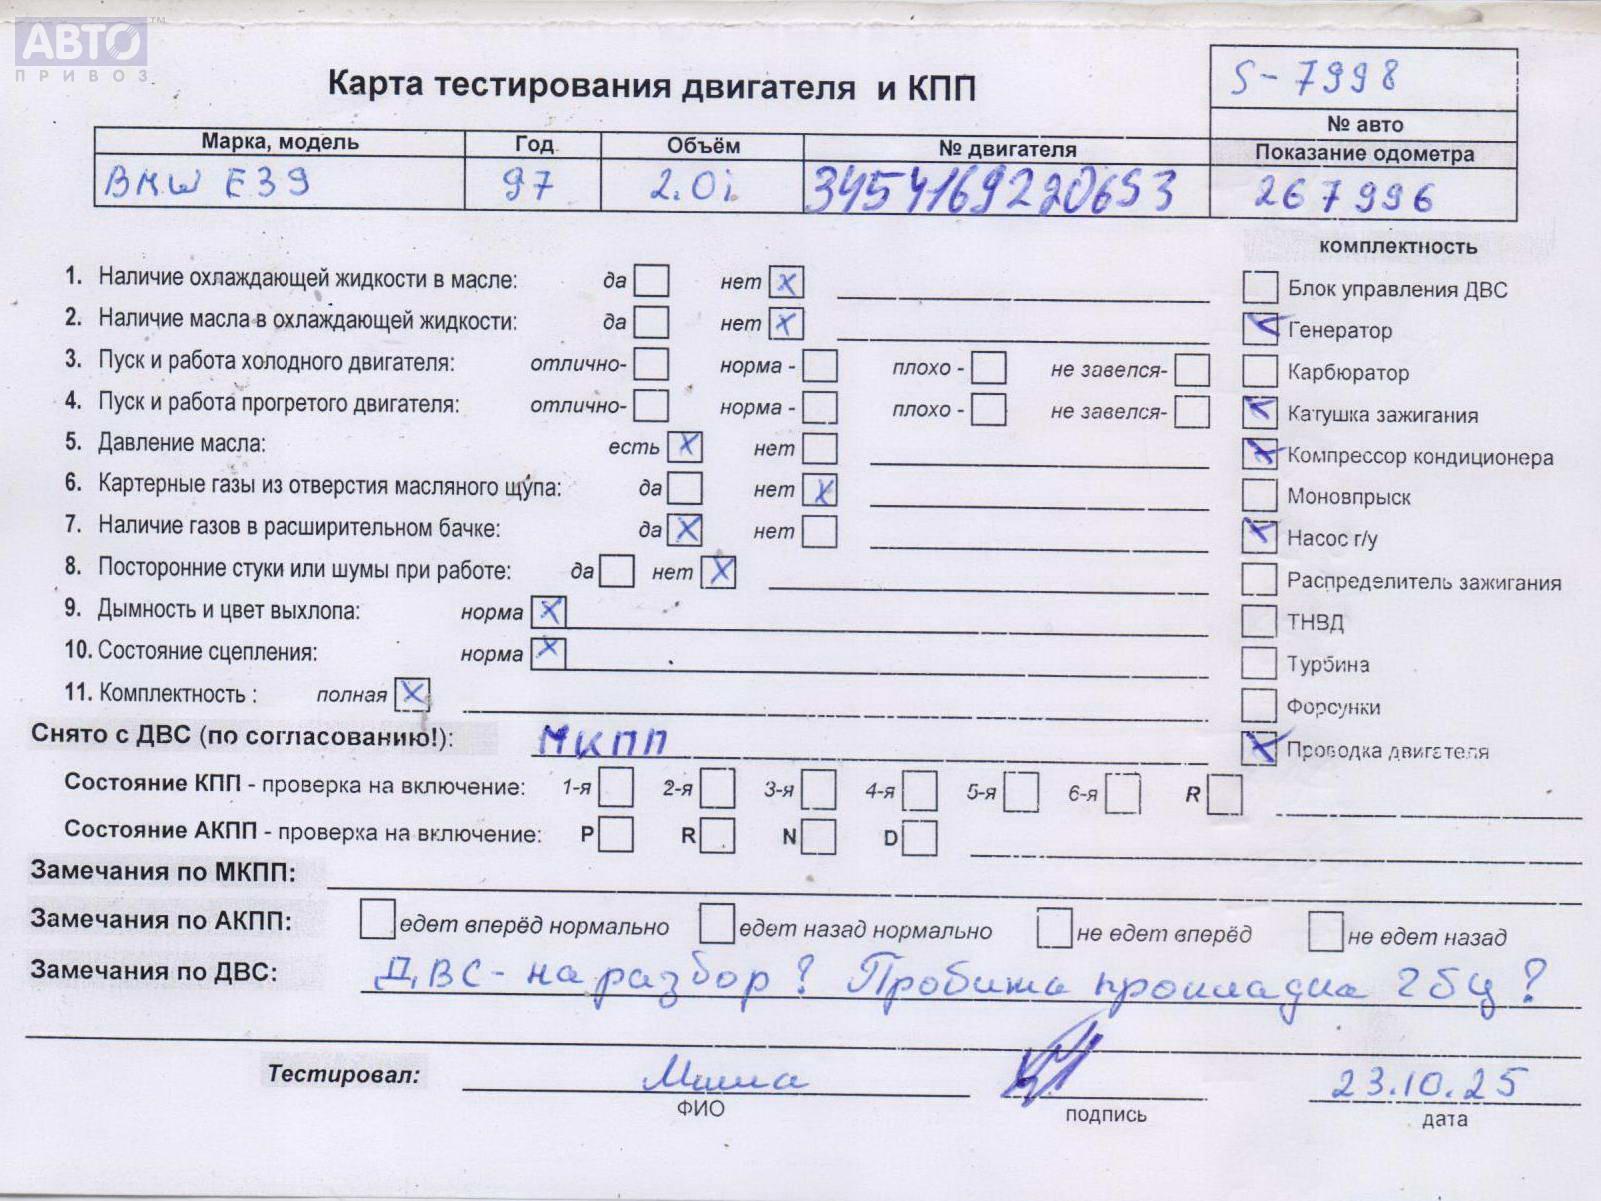 АВТО ™
ПРИВОЗ
Карта тестирования двигателя и КПП
S-7998
№ авто
Марка, модель Год Объём № двигателя Показание одометра
BMW E39 97 2.0i 34541692220653 267996
комплектность
1. Наличие охлаждающей жидкости в масле: да нет x
Блок управления ДВС
2. Наличие масла в охлаждающей жидкости: да нет x
Генератор
3. Пуск и работа холодного двигателя: отлично- норма - плохо - не завелся-
Карбюратор
4. Пуск и работа прогретого двигателя: отлично- норма - плохо - не завелся-
Катушка зажигания
5. Давление масла: есть x нет
Компрессор кондиционера
6. Картерные газы из отверстия масляного щупа: да нет x
Моновпрыск
7. Наличие газов в расширительном бачке: да x нет
Насос г/у
8. Посторонние стуки или шумы при работе: да нет x
Распределитель зажигания
9. Дымность и цвет выхлопа: норма x
ТНВД
10. Состояние сцепления: норма x
Турбина
11. Комплектность : полная x
Форсунки
Снято с ДВС (по согласованию!): МКПП
Проводка двигателя
Состояние КПП - проверка на включение: 1-я 2-я 3-я 4-я 5-я 6-я R
Состояние АКПП - проверка на включение: P R N D
Замечания по МКПП:
Замечания по АКПП: едет вперёд нормально едет назад нормально не едет вперёд не едет назад
Замечания по ДВС: ДВС - на разбор? Пробита прокладка гбц?
Тестировал: Миша 23.10.25
ФИО подпись дата